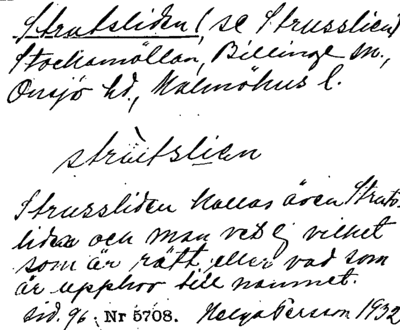 Strutsliden (se Strusslien)
Stockamöllan, Billinge sn.,
Onsjö hd., Malmöhus l.
strùtslien
Strussliden kallas även Struts-
liden och man vet ej vilket
som är rätt eller vad som
är upphov till namnet.
sid. 96. Nr 5708. Helga Persson 1932